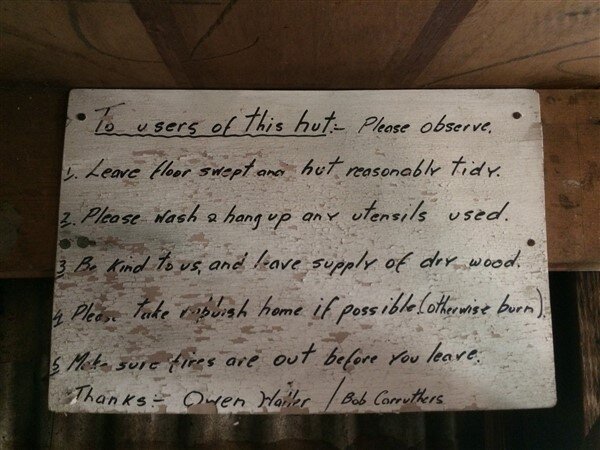 To users of this hut:- Please observe.
1. Leave floor swept and hut reasonably tidy.
2. Please wash & hang up any utensils used.
3 Be kind to us, and leave supply of dry wood.
4 Please take rubbish home if possible (otherwise burn).
5 Make sure fires are out before you leave.
Thanks:- Owen / Bob Carruthers